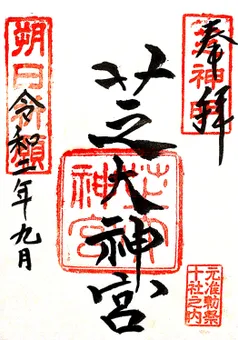 奉拝
芝大神宮
令和二年九月
朔日祈願
芝大神宮
元准勅祭
十社之内